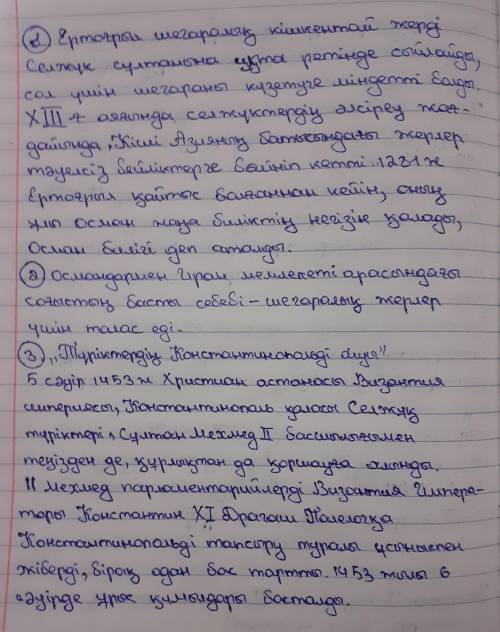 ① Ертоғрыл шегаралық кішкентай жерді
Селжүк сұлтанына ұқта ретінде сыйлайды,
сол үшін шегараны күзетуге міндетті болды.
XIII ғ аяғында селжүктердің әлсіреу жағ-
дайында, Кіші Азияның батысындағы жерлер
тәуелсіз бейліктерге бөлініп кетті. 1281 ж
Ертоғрыл қайтыс болғаннан кейін, оның
ұлы Осман жаңа биліктің негізін қалады,
Осман билігі деп аталды.
② Османдармен Иран мемлекеті арасындағы
соғыстың басты себебі – шегаралық жерлер
үшін талас еді.
③ „Түріктердің Константинопольді алуы"
5 сәуір 1453 ж Христиан астанасы Византия
империясы, Константинополь қаласы Селжүк
түріктері, Сұлтан Мехмед II басшылығымен
теңізден де, құрлықтан да қоршауға алынды.
II Мехмед парламентарийлерді Византия Импера-
торы Константин XI Драгаш Палеологқа
Константинопольді тапсыру туралы ұсыныспен
жіберді, бірақ одан бас тартты. 1453 жылы 6
сәуірде ұрыс қимылдары басталды.